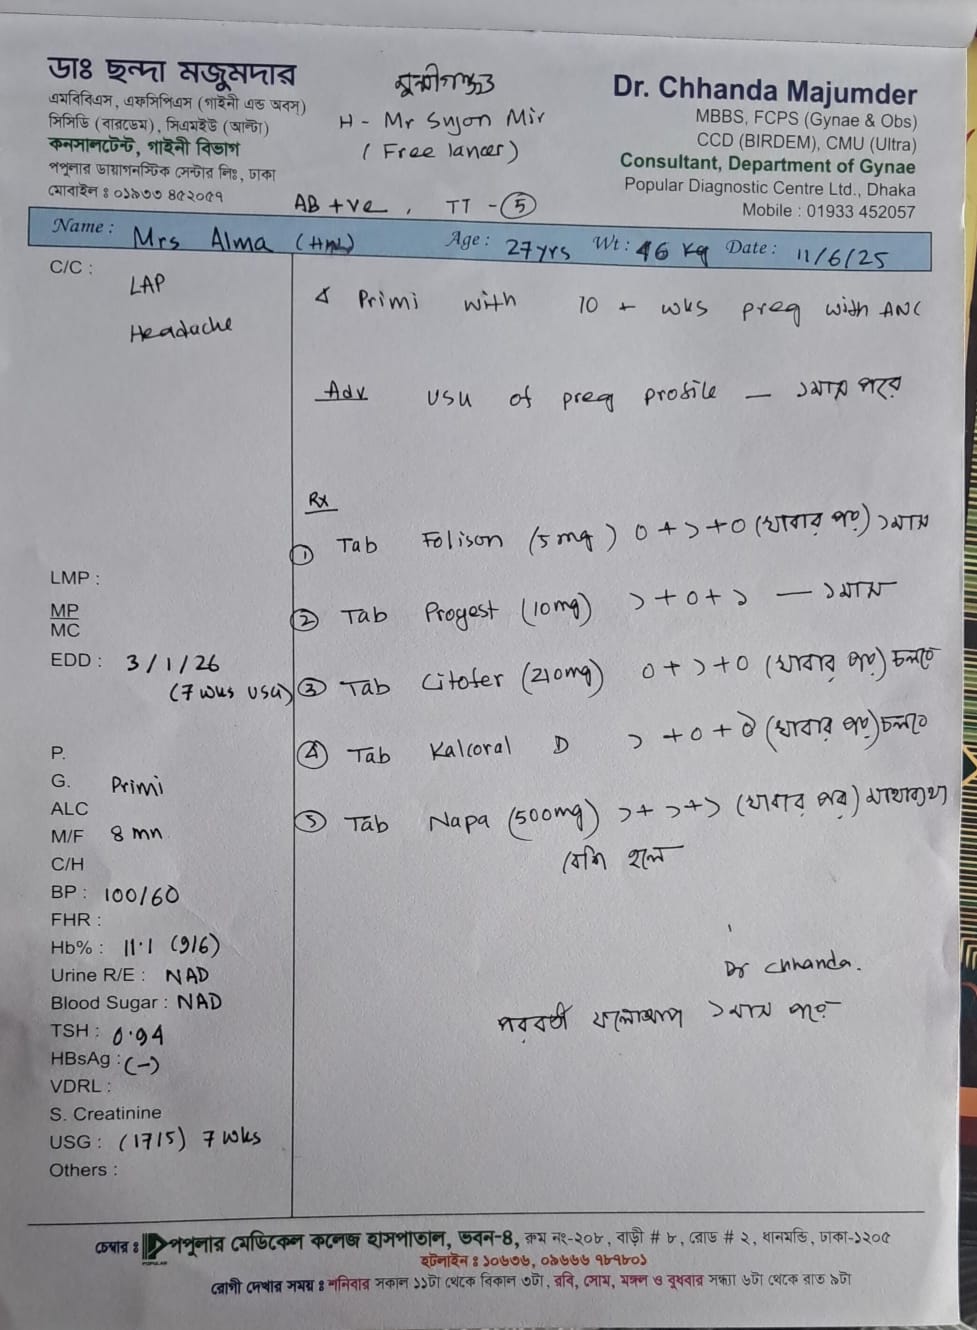 ডাঃ ছন্দা মজুমদার
এমবিবিএস, এফসিপিএস (গাইনী এন্ড অবস)
সিসিডি (বারডেম), সিএমইউ (আল্ট্রা)
কনসালটেন্ট, গাইনী বিভাগ
পপুলার ডায়াগনস্টিক সেন্টার লিঃ, ঢাকা
মোবাইল ঃ ০১৯৩৩ ৪৫২০৫৭
মুন্সীগঞ্জ
H - Mr Sujon Mir
(Free lancer)
AB +ve , TT - 5
Dr. Chhanda Majumder
MBBS, FCPS (Gynae & Obs)
CCD (BIRDEM), CMU (Ultra)
Consultant, Department of Gynae
Popular Diagnostic Centre Ltd., Dhaka
Mobile : 01933 452057
Name : Mrs Alma Age : 27 yrs Wt : 46 kg Date : 11/6/25
C/C :
LAP
Headache
LMP :
MP
MC
EDD : 3/1/26
(7 wks USG)
P.
G. Primi
ALC
M/F 8 mn
C/H
BP : 100/60
FHR :
Hb% : 11.1 (9/6)
Urine R/E : NAD
Blood Sugar : NAD
TSH : 0.94
HBsAg : (-)
VDRL :
S. Creatinine
USG : (17/5) 7 wks
Others :
Δ Primi with 10 + wks preg with ANC
Adv USG of preg profile — ১মাস পরে
Rx
① Tab Folison (5 mg) 0 + ১ + 0 (খাবার পরে) ১মাস
② Tab Progest (10mg) ১ + 0 + ১ — ১মাস
③ Tab Citofer (210mg) 0 + ১ + 0 (খাবার পরে) চলবে
④ Tab Kalcoral D ১ + 0 + 0 (খাবার পরে) চলবে
⑤ Tab Napa (500mg) ১ + ১ + ১ (খাবার পরে) মাথাব্যথা
বেশি হলে
Dr Chhanda.
পরবর্তী যোগাযোগ ১মাস পরে
চেম্বার ঃ পপুলার মেডিকেল কলেজ হাসপাতাল, ভবন-৪, রুম নং-২০৮, বাড়ী # ৮, রোড # ২, ধানমন্ডি, ঢাকা-১২০৫
POPULAR
হটলাইন ঃ ১০৬৩৬, ০৯৬৬৬ ৭৮৭৮০১
রোগী দেখার সময় ঃ শনিবার সকাল ১১টা থেকে বিকাল ৩টা, রবি, সোম, মঙ্গল ও বুধবার সন্ধ্যা ৬টা থেকে রাত ৯টা